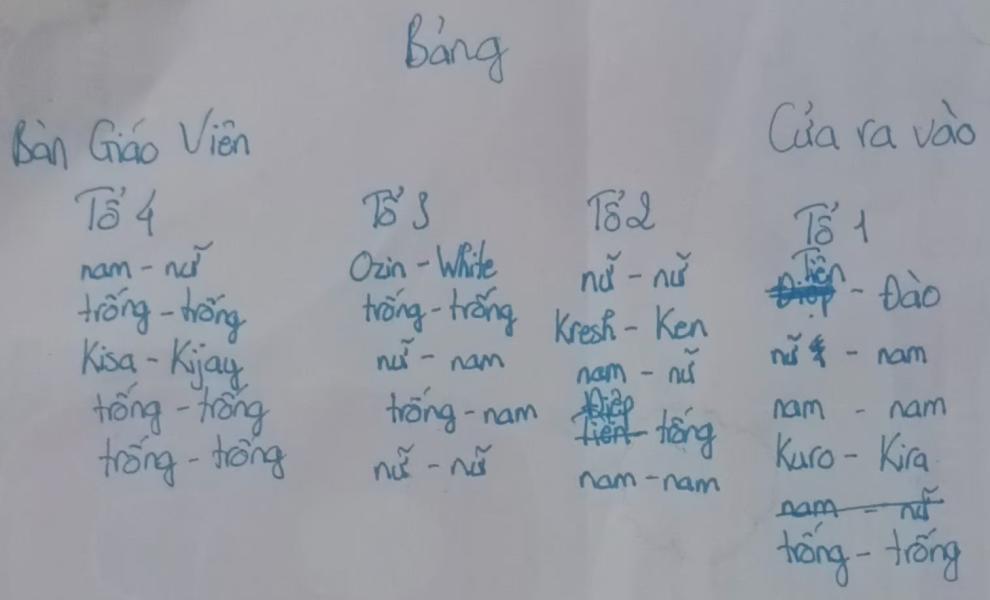 Bảng
Bàn Giáo Viên
Cửa ra vào
Tổ 4
nam - nữ
trống - trống
Kisa - Kijay
trống - trống
trống - trống
Tổ 3
Ozin - White
trống - trống
nữ - nam
trống - nam
nữ - nữ
Tổ 2
nữ - nữ
Kresh - Ken
nam - nữ
Điệp
Tiến - tống
nam - nam
Tổ 1
Tiến
Điệp - Đào
nữ - nam
nam - nam
Kuro - Kira
nam - nữ
trống - trống